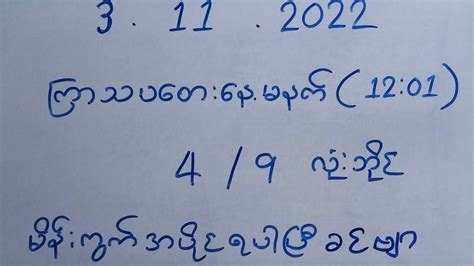 3 . 11 . 2022
ကြာသပတေးနေ့မနက် (12:01)
4 / 9 လုံးဘိုင်
မိန်းကွက် အပိုင်ရပါပြီ ခင်ဗျာ